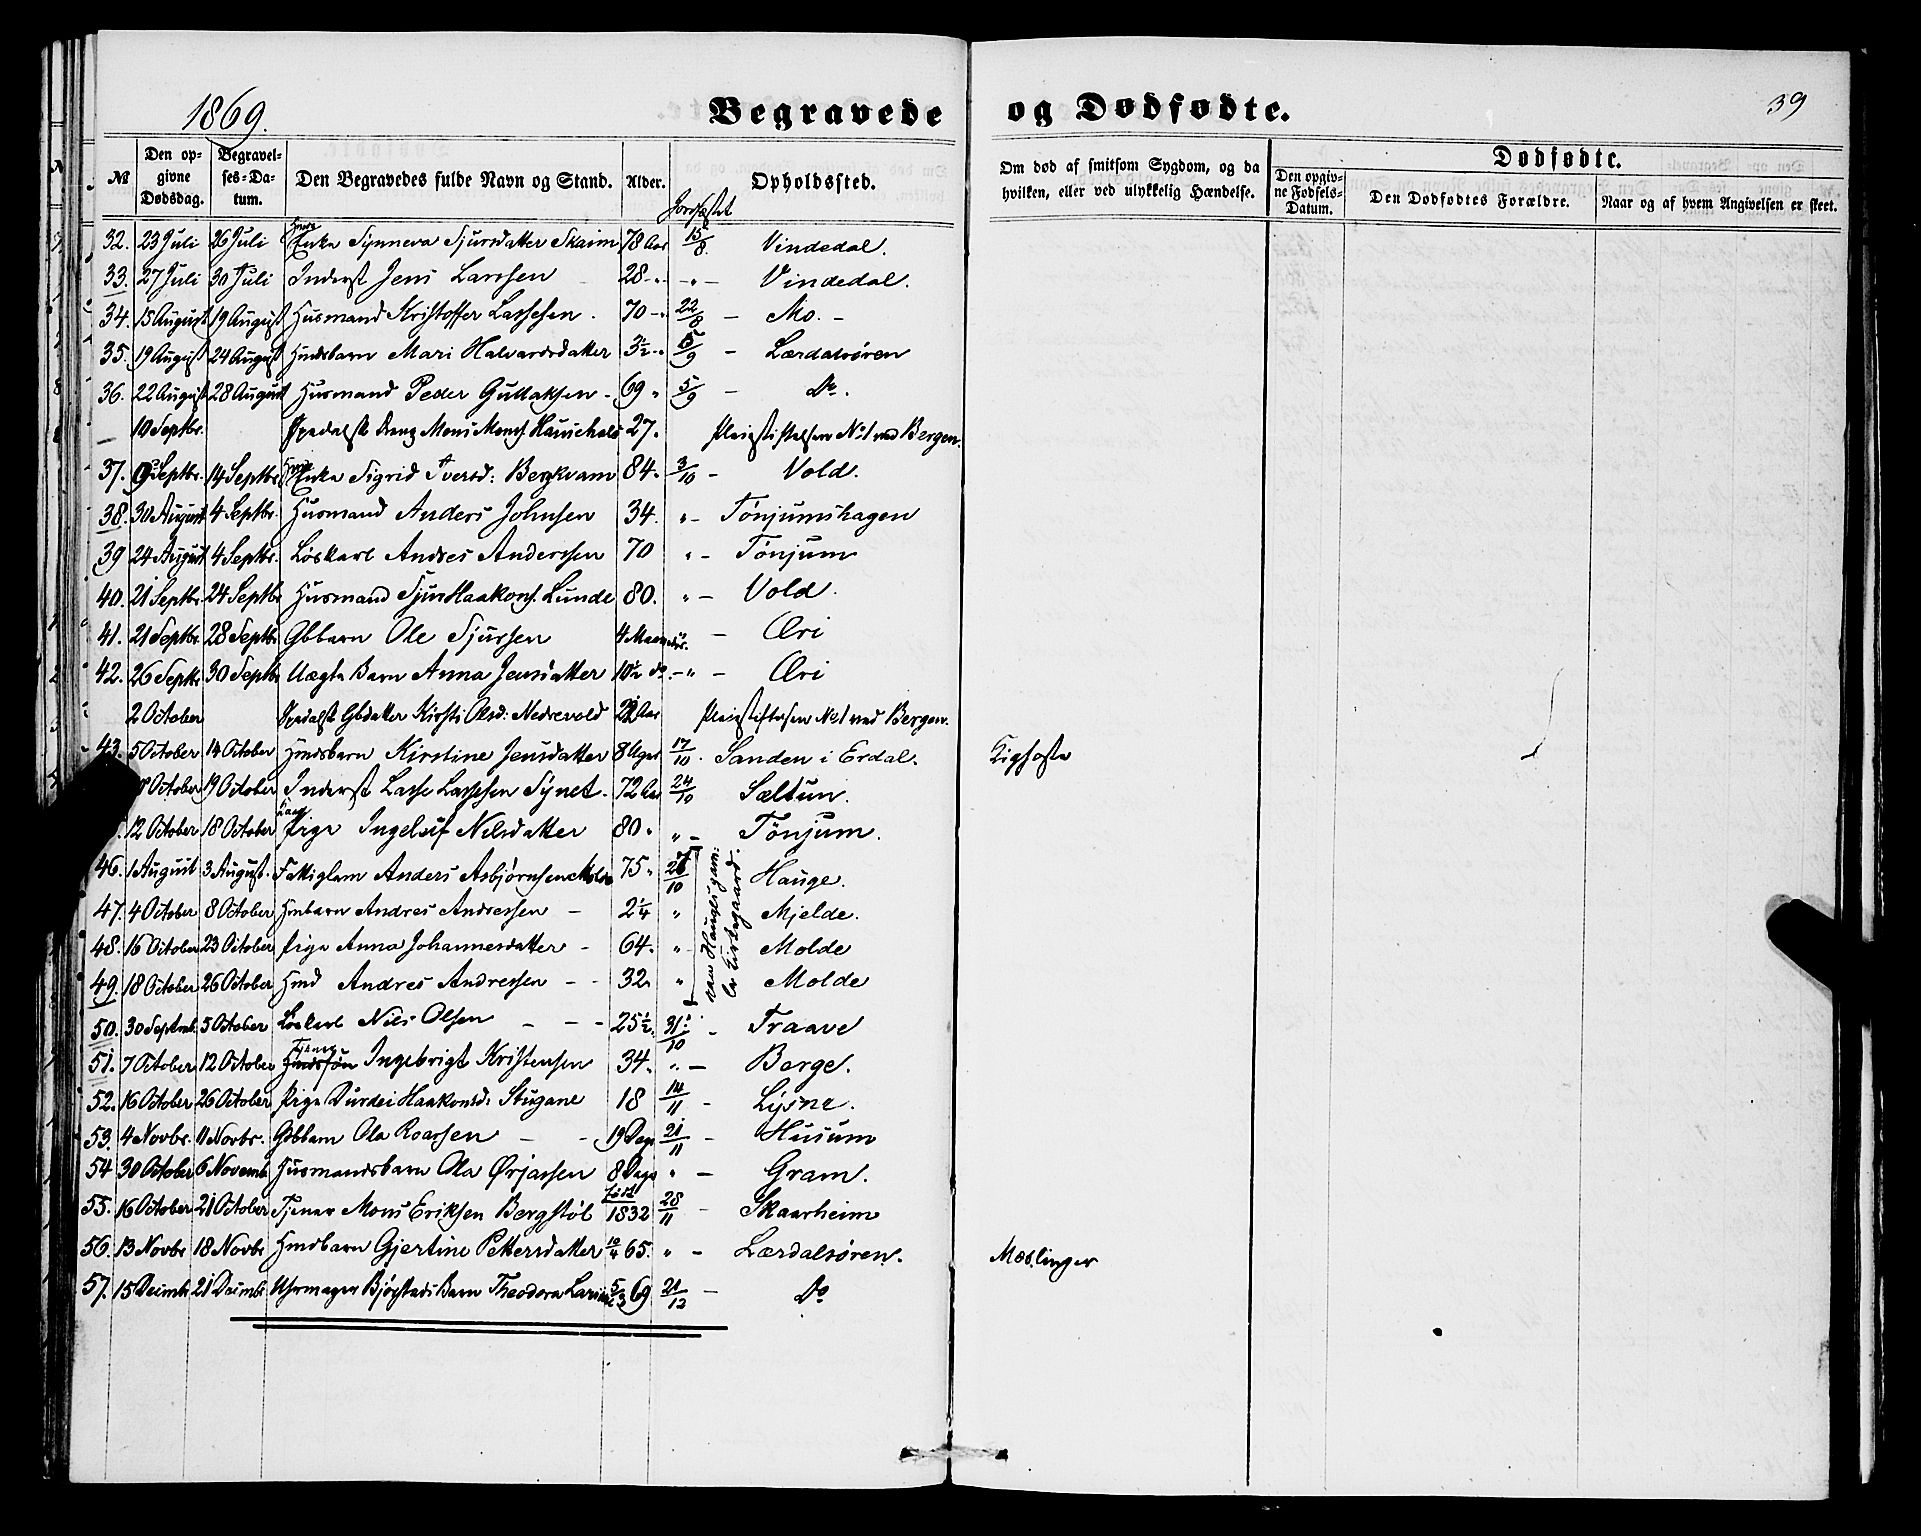 1869.
Begravede og Dødfødte.
39
№
Den opgivne Dødsdag.
Begravelses-Datum.
Den Begravedes fulde Navn og Stand.
Alder.
Jordfæstet
Opholdssted.
Om død af smitsom Sygdom, og da hvilken, eller ved ulykkelig Hændelse.
Dødfødte.
Den opgivne Fødsels-Datum.
Den Dødfødtes Forældre.
Naar og af hvem Angivelsen er skeet.
32. 23 Juli 26 Juli Enke Synneva Sjursdatter Skaim 78 Aar 15/8. Vindedal.
33. 27 Juli 30 Juli Inderst Jens Larssen 28 - " - Vindedal.
34. 15 August 19 August Husmand Kristoffer Lassesen. 70 - 22/8 - Mo. -
35. 19 August 24 August Hmdsbarn Mari Halvardsdatter 3½ - 5/9 - Lærdalsøren
36. 22 August 28 August Husmand Peder Gullaksen - 69 " 5/9 - Do.
- 10 Septbr. Spedalsk Dreng Mons Mons. 27. Pleiestiftelsen No 1 ved Bergen.
37. 9 Septbr. 14 Septbr. Enke Sigrid Iversd: Bergkvam 84. 3/10 - Vold.
38. 30 August 4 Septbr. Husmand Anders Johnsen 34. " - Tönjumshagen
39 24 August 4 Septbr. Løskarl Andres Anderssen 70 " - Tönjum
40. 21 Septbr. 24 Septbr Husmand Sjur Haakons. Lunde 80. " - Vold.
41. 21 Septbr. 28 Septbr Gbbarn Ole Sjursen 4 Maaneder. " - Øri
42. 26 Septbr 30 Septbr Uægte Barn Anna Jensdatter 10½ do. - " - Øri
2 October Spedalsk Gbdatter Kirsti Olsd: Nedrevold 22 Aar Pleiestiftelsen No 1 ved Bergen.
43. 5 October 14 October Hmdsbarn Kirstine Jensdatter 8 Uger 17/10. Sanden i Erdal. Kighoste
October 19 October Inderst Lasse Lassesen Synet. 72 Aar 24/10 Sæltun.
12 October 18 October Pige Ingeleif Nilsdatter 80. " - Tönjum.
46. 1 August 3 August. Fattiglem Anders Asbjørnsen Molde 75 " 27/10 Hauge.
47. 4 October 8 October Hmbarn Andres Andressen - 2¼ " Mjelde.
48. 16 October 23 October Pige Anna Johannesdatter - 64. " Molde
49. 18 October 26 October Hmd Andres Andressen - - 32. " Molde
paa Hauges gamle Kirkegaard.
50. 30 Septmb. 5 October Løskarl Nils Olsen - - - 25½. 31/10 - Traave
51. 7 October 12 October Tjener Ingebrigt Kristensen 34. " - Berge.
52. 16 October 26 October Pige Durdei Haakonsd: Stugane 18 14/11 - Lysne.
53. 4 Novbr. 11 Novbr. Gbbarn Ola Roarsen - - 19 Dage 21/11 - Husum
54 30 October 6 Novemb Husmandsbarn Ola Ørjassen 8 Dage " - Gram.
55. 16 October 21 October Tjener Mons Eriksen Bergstøl født 1832 28/11 - Skaarheim
56. 13 Novbr 18 Novbr Hmdbarn Gjertine Pettersdatter 10/4 65. " - Lærdalsøren. Mæslinger
57. 15 Decmb 21 Decmbr Uhrmager Bjøgstads Barn Theodora 5/3 69 21/12 - Do